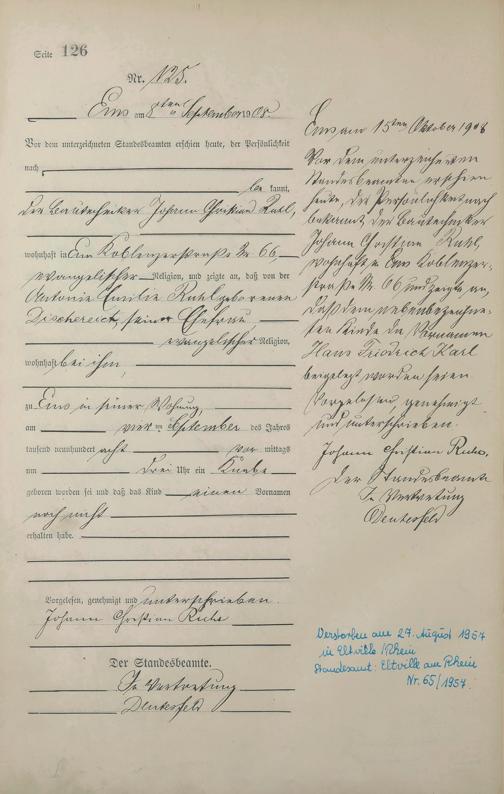 Seite 126
Nr. 125.
Ems am 8ten September 1908.
Vor dem unterzeichneten Standesbeamten erschien heute, der Persönlichkeit
nach
be kannt,
der Bautechniker Johann Christian Ruhl,
wohnhaft in Ems Koblenzerstraße Nr. 66,
evangelischer Religion, und zeigte an, daß von der
Antonie Emilie Ruhl geborenen
seiner Ehefrau,
evangelischer Religion,
wohnhaft bei ihm,
zu Ems in seiner Wohnung,
am vierten September des Jahres
tausend neunhundert acht vor mittags
um drei Uhr ein Knabe
geboren worden sei und daß das Kind einen Vornamen
noch nicht
erhalten habe.
Vorgelesen, genehmigt und unterschrieben.
Johann Christian Ruhl
Der Standesbeamte.
In Vertretung
Ems am 15ten Oktober 1908
Vor dem unterzeichneten
Standesbeamten erschien
heute, der Persönlichkeit nach
bekannt der Bautechniker
Johann Christian Ruhl,
wohnhaft in Ems Koblenzer-
straße Nr. 66 und zeigte an,
daß dem nebenbezeichne-
ten Kinde die Vornamen
Hans Friedrich Karl
beigelegt worden seien
Vorgelesen, genehmigt
und unterschrieben.
Johann Christian Ruhl,
Der Standesbeamte
In Vertretung
Verstorben am 27. August 1957
in Eltville/Rhein
Standesamt: Eltville am Rhein
Nr. 65/1957.